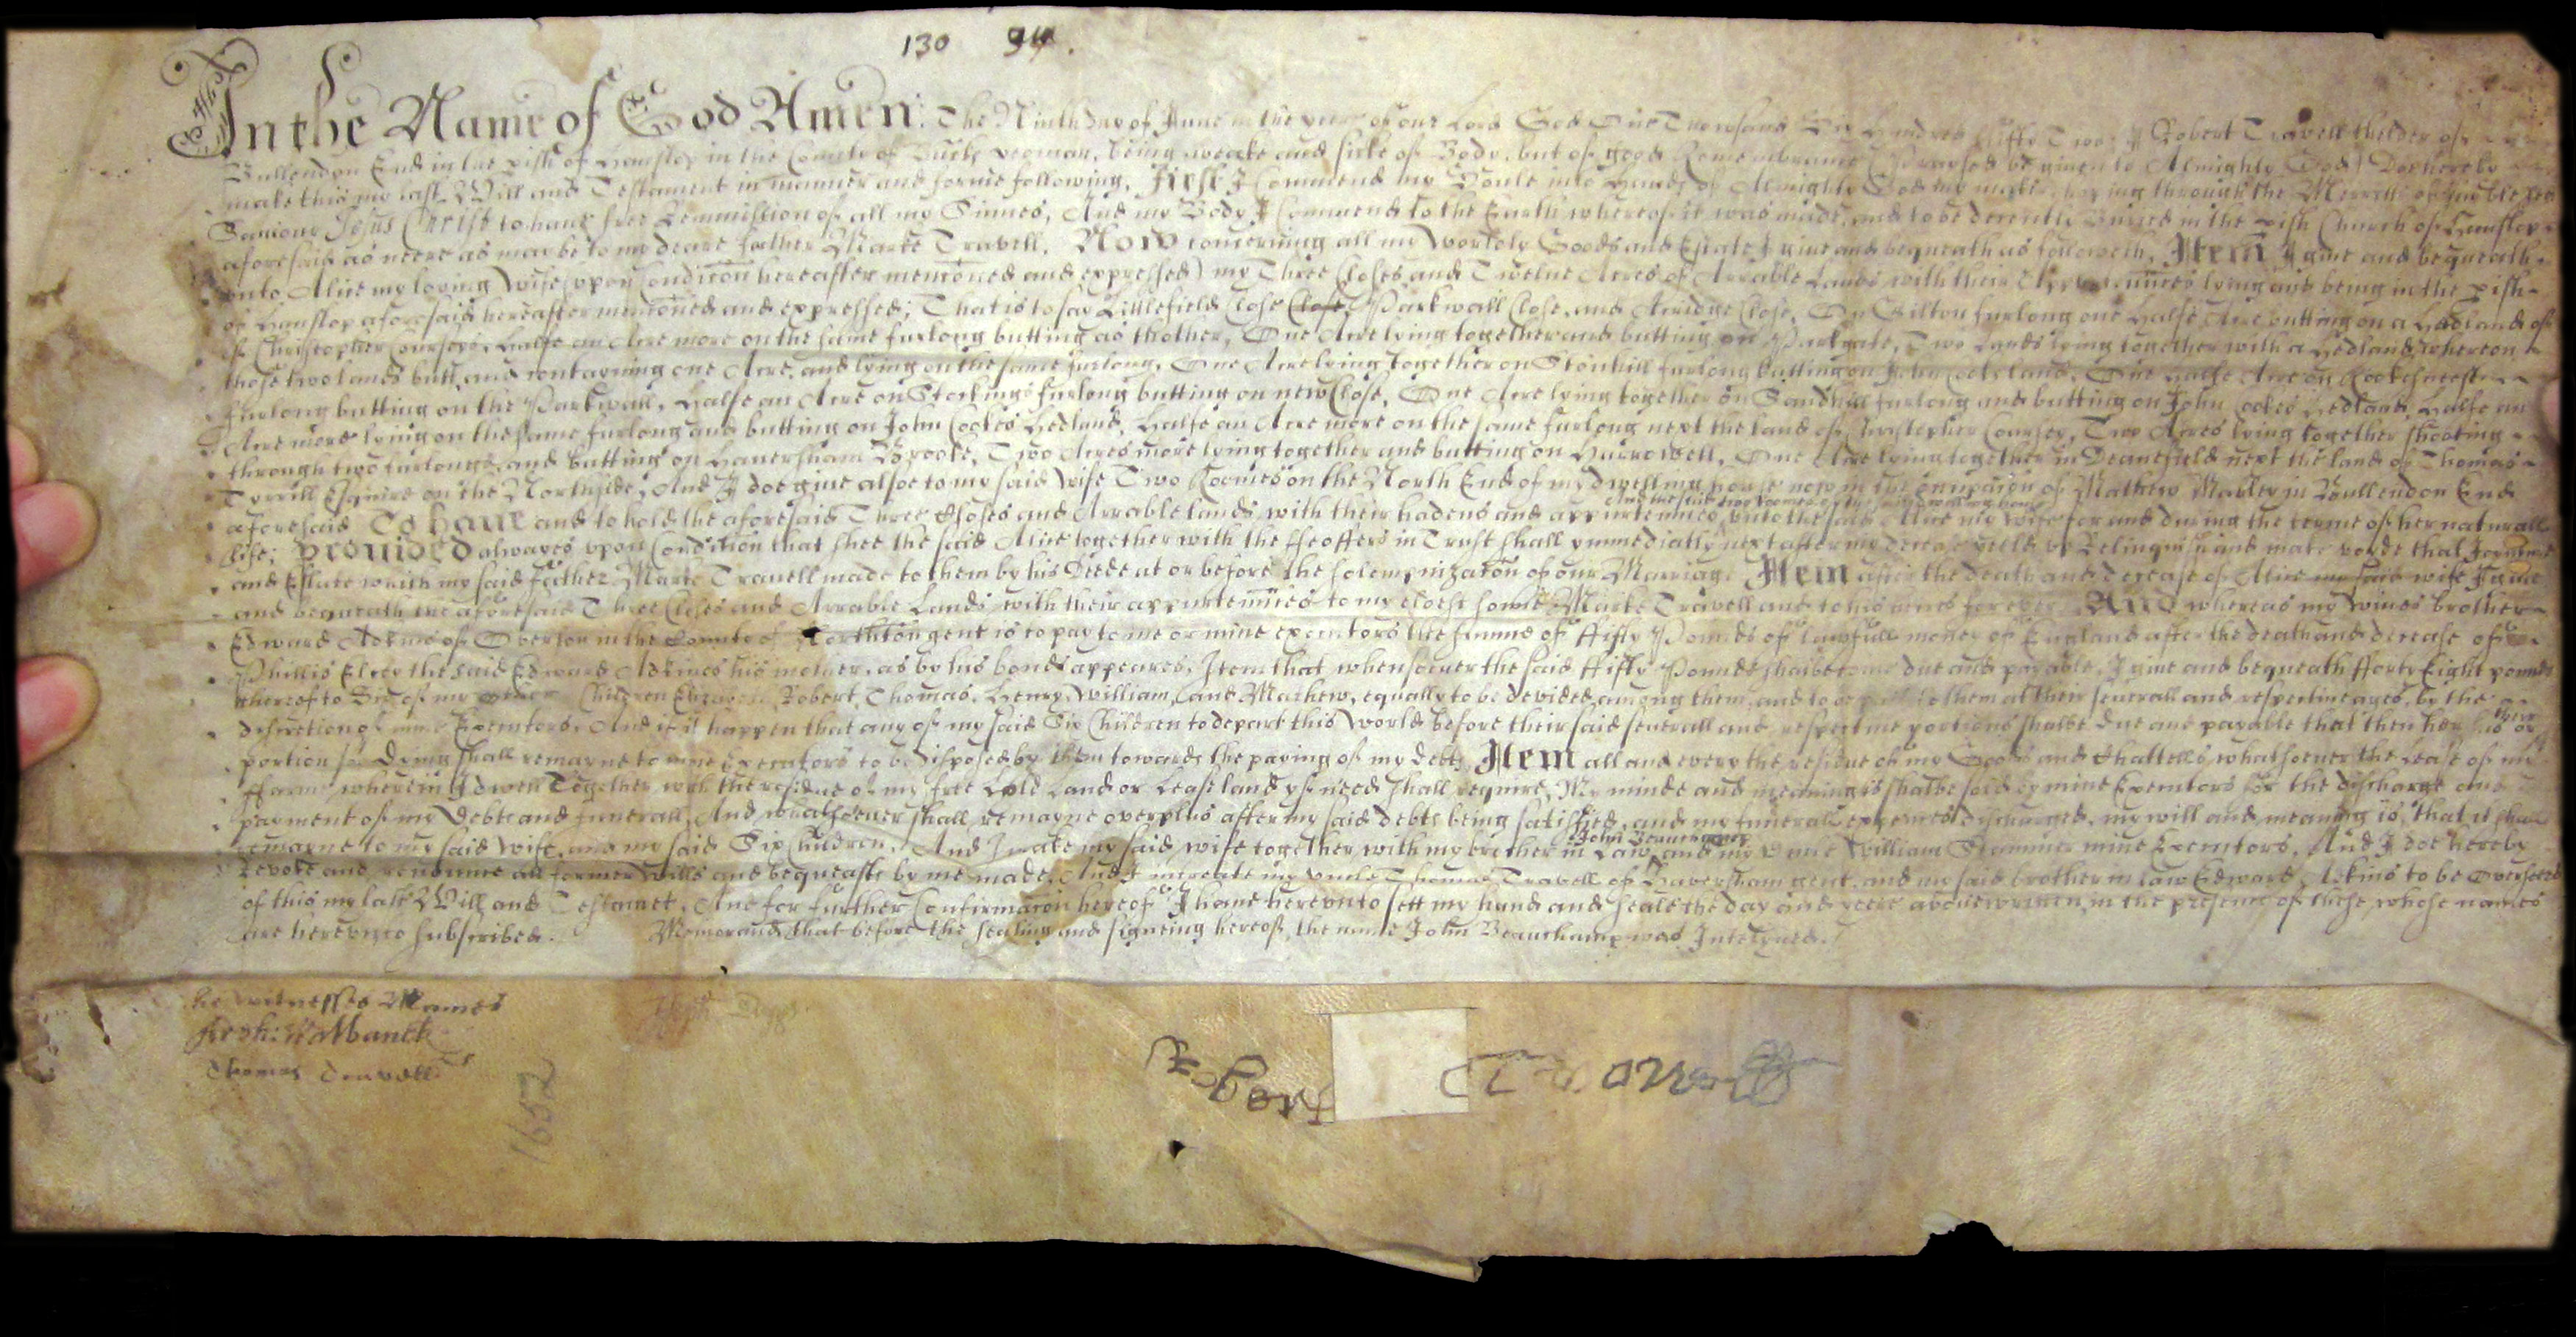 130 94.
In the Name of God Amen. The Ninth day of June in the yeare of our Lord God One Thowsand Six Hundred fiffty Two I Robert Travell thelder of
Bullendon End in the pish of Hanslop in the County of Bucks yeoman, being weake and sicke of Body, but of good Remembrance (Praysed be given to Almighty God) Doe hereby
make this my last Will and Testament in manner and forme following, First I Commend my Soule into hands of Almighty God my maker, hoping through the Merritts of my blessed
Saviour Jesus Christ to haue free Remmission of all my Sinnes, And my Body I Commend to the Earth whereof it was made, and to be decently Buried in the pish Church of Hanslop
aforesaid as neere as may be to my deare father Marke Travell. Now concerning all my Worldly Goods and Estate I giue and bequeath as followeth, Item I giue and bequeath
vnto Alice my loving Wife (vpon Condicon hereafter menconed and expressed) my Three Closes and Twelue Acres of Arrable Lands with their Appurtennces lying and being in the pish
of Hanslop aforesaid hereafter menconed and expressed; That is to say Littlefield Close Close Parkwall Close, and Close, On furlong one Halfe Acre butting on a Hadland of
of Christopher Coursey, Halfe an Acre more on the same furlong butting as thother, One Acre lying together and butting on Parkgate, Two Lands lying together with a Hedland whereon
those two lands butt, and contayning one Acre, and lying on the same furlong, One Acre lying together on Stonhill furlong butting on John Cockes land, One Halfe Acre on
furlong butting on the Parkwall, Halfe an Acre on Stockings furlong butting on new Close, One Acre lying together on Sandhill furlong and butting on John Cockes Hedland, Halfe an
Acre more lying on the same furlong and butting on John Cockes Hedland, Halfe an Acre more on the same furlong next the land of Christopher Coursey, Two Acres lying together shooting
through two furlongs, and butting on Haversham Brooke, Two Acres more lying together and butting on Harrowell, One Acre lying together in Deanefield next the land of Thomas
Tyrrill Esquire on the Northside, And I doe giue alsoe to my said Wife Two Roomes on the North End of my dwelling house now in the occupacon of Mathew Mabley in Bullendon End
and the said two roomes of the said dwelling house
aforesaid To haue and to hold the aforesaid Three Closes and Arrable lands with their hadens and appurtennces vnto the said Alice my Wife for and during the terme of her naturall
life; Prouided alwayes vpon Condition that shee the said Alice together with the ffeoffers in Trust shall ymmediatly next after my decease yeeld vp Relinquish and make voyde that Joynture
and Estate which my said father Marke Travell made to them by his Deede at or before the solempnizacon of our Marriage Item after the death and decease of Alice my said wife I giue
and bequeath the aforesaid Three Closes and Arrable Lands with their appurtennces to my eldest sonne Marke Travell and to his heires for ever, And whereas my Wiues brother
Edward Adkins of Overton in the County of Northton gent is to pay to me or mine executors the summe of ffifty Pounds of lawfull money of England after the death and decease of
Phillis Elrey the said Edward Adkines his mother, as by his bonds appeares, Item that whensoever the said ffifty Pounds shalbecome due and payable, I giue and bequeath fforty Eight pounds
thereof to Six of my other Children Elizabeth Robert, Thomas, Henry, William, and Mathew, equally to be devided among them, and to be paid to them at their severall and respectiue ages, by the
discretion of mine Executors, And if it happen that any of my said Six Children to depart this World before their said severall and respectiue portions shalbe due and payable that then her his or their
portion soe dying shall remayne to mine Executors to be disposed by them towards the paying of my debts, Item all and every the residue of my Goods and Chattells whatsoever the Lease of my
ffarme wherein I dwell Together with the residue of my free Hold Land or Lease land yf need shall require, My minde and meaning is shalbe sold by mine Executors for the discharge and
payment of my Debts and funerall, And whatsoever shall remayne overplus after my said debts being satisfied, and my funerall expences discharged, my will and meaning is, that it shall
John Beauchampe
remayne to my said Wife, and my said Six Children, And I make my said wife together with my brother in Law and my William mine Executors, And I doe hereby
Revoke and renounce all former Wills and bequeasts by me made, And I intreate my vncle Thomas Travell of Haversham gent, and my said brother in law Edward Adkins to be Overseers
of this my last Will and Testamet, And for further Confirmacon hereof I haue herevnto sett my hand and seale the day and yeere abouewritten, in the presence of these whose names
are herevnto subscribed. Memorand that before the sealing and signeing hereof, the name John Beauchamp was Interlyned.
he witnesses Names
Thomas Travell
1652
Robert Travell